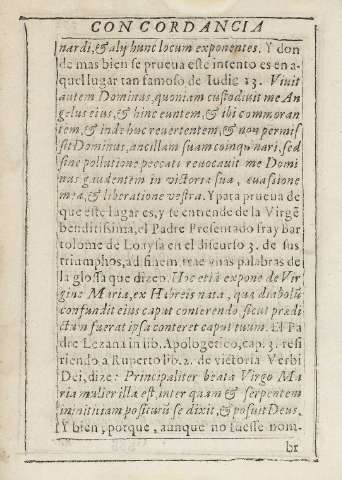 CONCORDANCIA
nardi, & alij hunc locum exponentes. Y don
de mas bien se prueua este intento es en a-
quel lugar tan famoso de Iudic 13. Viuit
autem Dominus, quoniam custodiuit me An
gelus eius, & hinc euntem, & ibi commoran
tem, & inde huc reuertentem, & non permis
sit Dominus, ancillam suam coinquinari, sed
sine pollutione peccati reuocauit me Domi
nus gaudentem in victoria sua, euasione
mea, & liberatione vestra. Y para prueua de
que este lugar es, y se entiende de la Virgẽ
benditissima, el Padre Presentado fray bar
tolome de Loaysa en el discurso 3. de sus
triumphos, ad finem, trae vnas palabras de
la glossa que dizen. Hoc etiã expone de Vir
gine Maria, ex Hebreis nata, quæ diabolũ
confundit eius caput conterendo sicut prædi
ctum fuerat ipsa conteret caput tuum. El Pa
dre Lezana in lib. Apologetico, cap. 3. resi
riendo a Ruperto lib. 2. de victoria Verbi
Dei, dize: Principaliter beata Virgo Ma
ria mulier illa est, inter quam & serpentem
inimicitiam posituru se dixit, & posuit Deus.
Y bien, porque, aunque no fuesse nom-
br